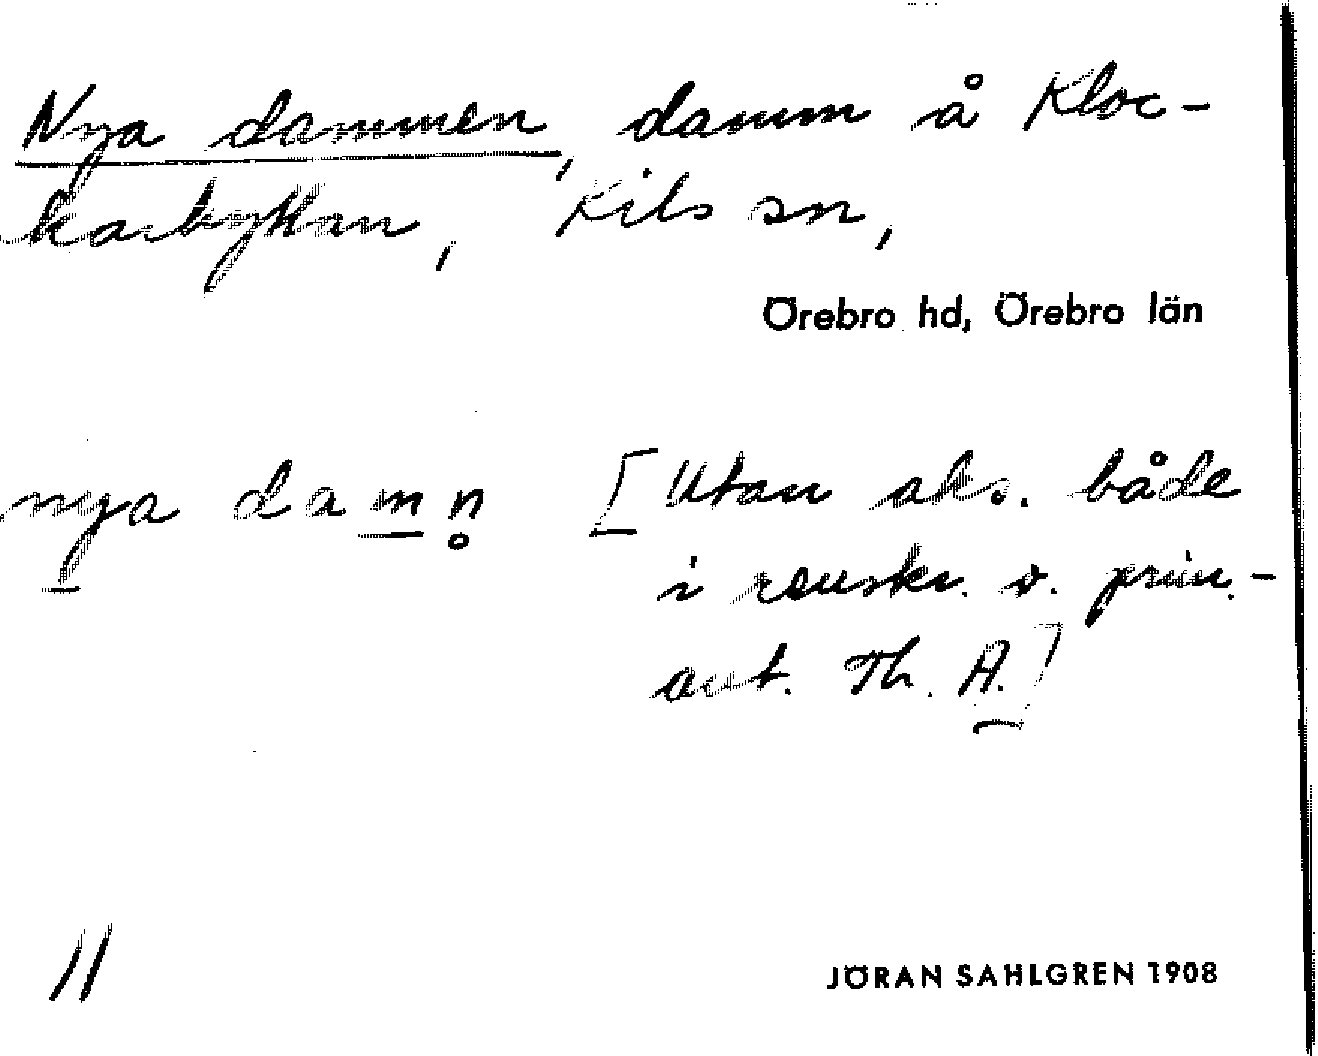 Nya dammen, damm å Kloc-
karhyttan, Kils sn,
Örebro hd, Örebro län
nya damn̥ [Utan aks. både
i renskr. o. prim.-
ant. Th. A.]
11
JÖRAN SAHLGREN 1908